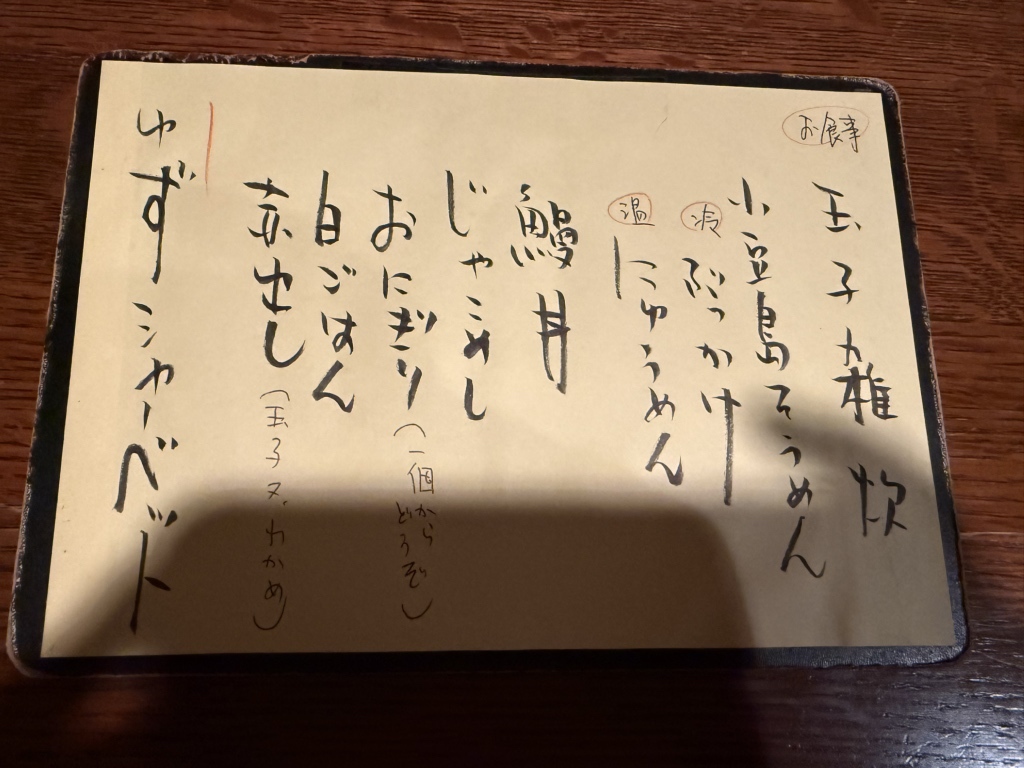 お食事
玉子雑炊
小豆島そうめん
冷 ぶっかけ
温 にゅうめん
鰻丼
じゃこめし
おにぎり(一個からどうぞ)
白ごはん
赤出し(玉子又ハわかめ)
ゆずシャーベット